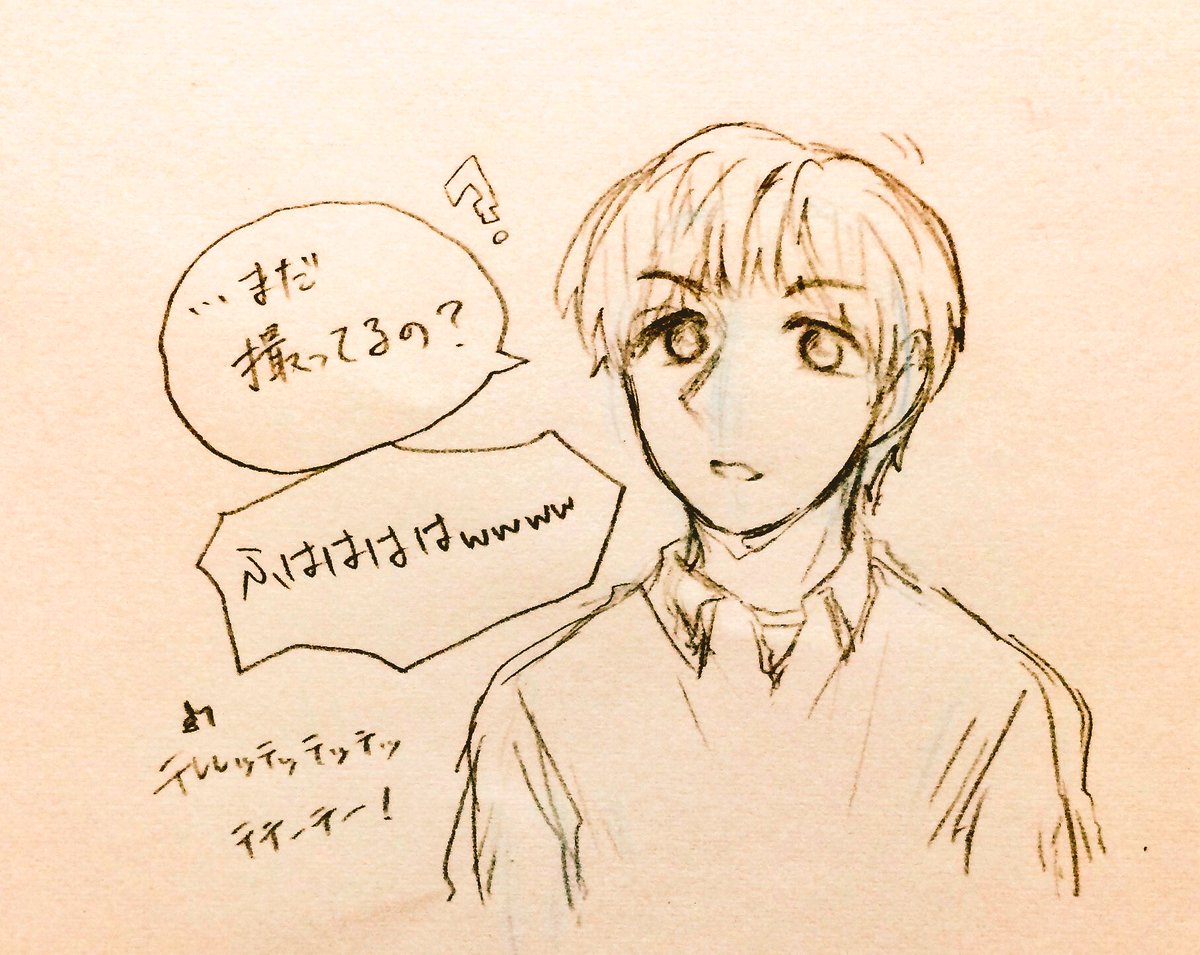 ?
…まだ
撮ってるの?
ふははははwwww
♪
テレレッテッテッテッ
テテーテー!